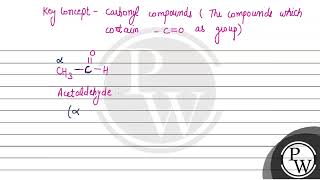 Key Concept - Carbonyl compounds ( The compounds which
contain - C=O as group)
α O
CH3 - C - H
Acetaldehyde
(α
PW